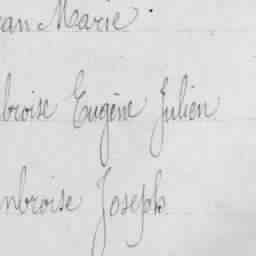 ean Marie
broise Eugène Julien
mbroise Joseph